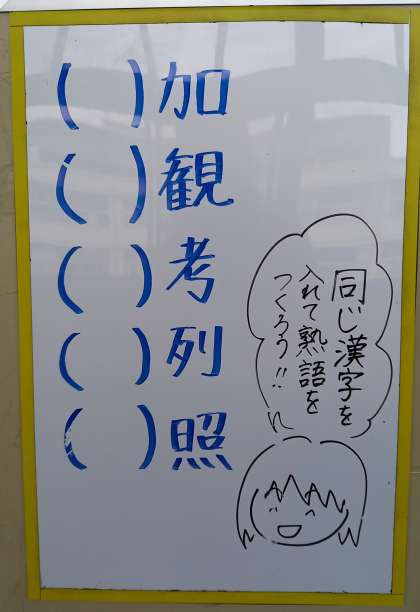 ( )加
( )観
( )考
( )列
( )照
同じ漢字を
入れて熟語を
つくろう!!